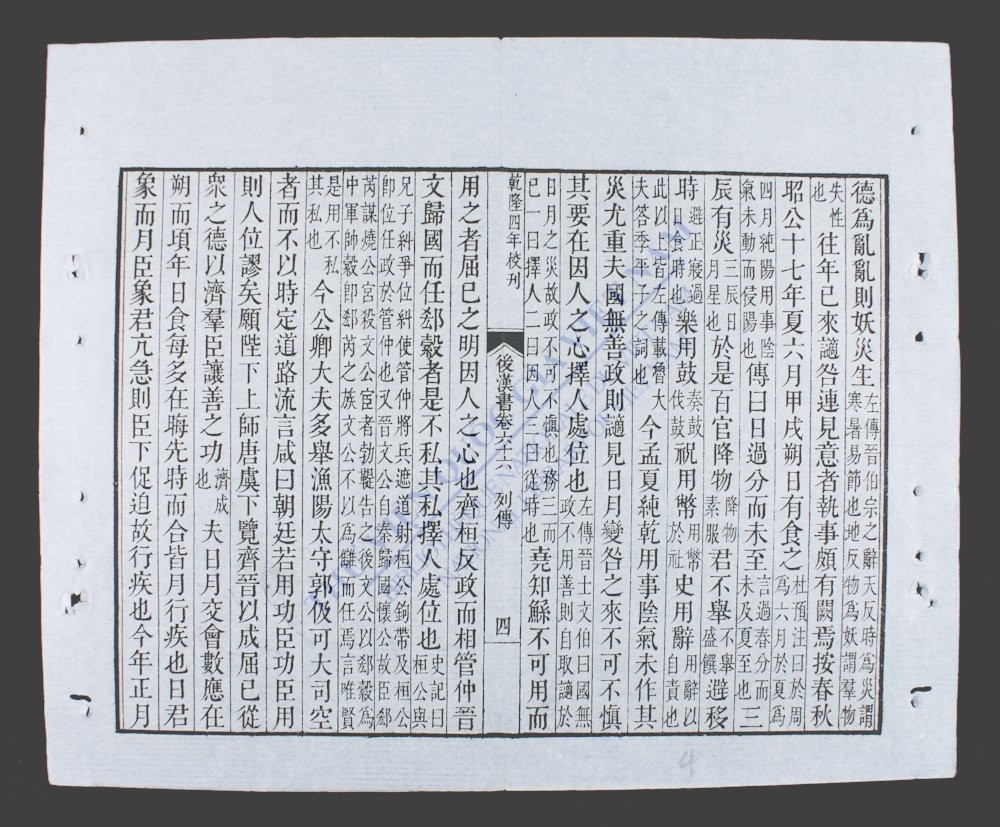 德爲亂亂則妖災生左傳晉伯宗之辭天反時爲災謂寒暑易節也地反物爲妖謂羣物
失性也往年已來讁咎連見意者執事頗有闕焉按春秋
昭公十七年夏六月甲戌朔日有食之杜預注曰於周爲六月於夏爲
四月純陽用事陰氣未動而侵陽也傳曰日過分而未至言過春分而未及夏至也三
辰有災三辰日月星也於是百官降物降物素服君不舉不舉盛饌避移
時避正寢過日食時也樂用鼓奏鼓伐鼓祝用幣用幣於社史用辭用辭以自責也
此以上皆左傳載魯大夫答季平子之詞也今孟夏純乾用事陰氣未作其
災尤重夫國無善政則讁見日月變咎之來不可不慎
其要在因人之心擇人處位也左傳晉士文伯曰國無政不用善則自取讁於
日月之災故政不可不慎也務三而已一曰擇人二曰因人三曰從時也堯知鯀不可用而
乾隆四年校刊
後漢書卷六十六 列傳
四
用之者屈已之明因人之心也齊桓反政而相管仲晉
文歸國而任郄縠者是不私其私擇人處位也史記曰桓公與
兄子糾爭位糾使管仲將兵遮道射桓公鉤帶及桓公卽位任政於管仲也又晉文公自秦歸國懷公故臣郄
芮謀燒公宮殺文公宦者勃鞮告之後文公以郄縠爲中軍帥縠卽郄芮之族文公不以爲讎而任焉言唯賢
是用不私其私也今公卿大夫多舉漁陽太守郭伋可大司空
者而不以時定道路流言咸曰朝廷若用功臣功臣用
則人位謬矣願陛下上師唐虞下覽齊晉以成屈已從
衆之德以濟羣臣讓善之功濟成也夫日月交會數應在
朔而頃年日食每多在晦先時而合皆月行疾也日君
象而月臣象君亢急則臣下促迫故行疾也今年正月
4